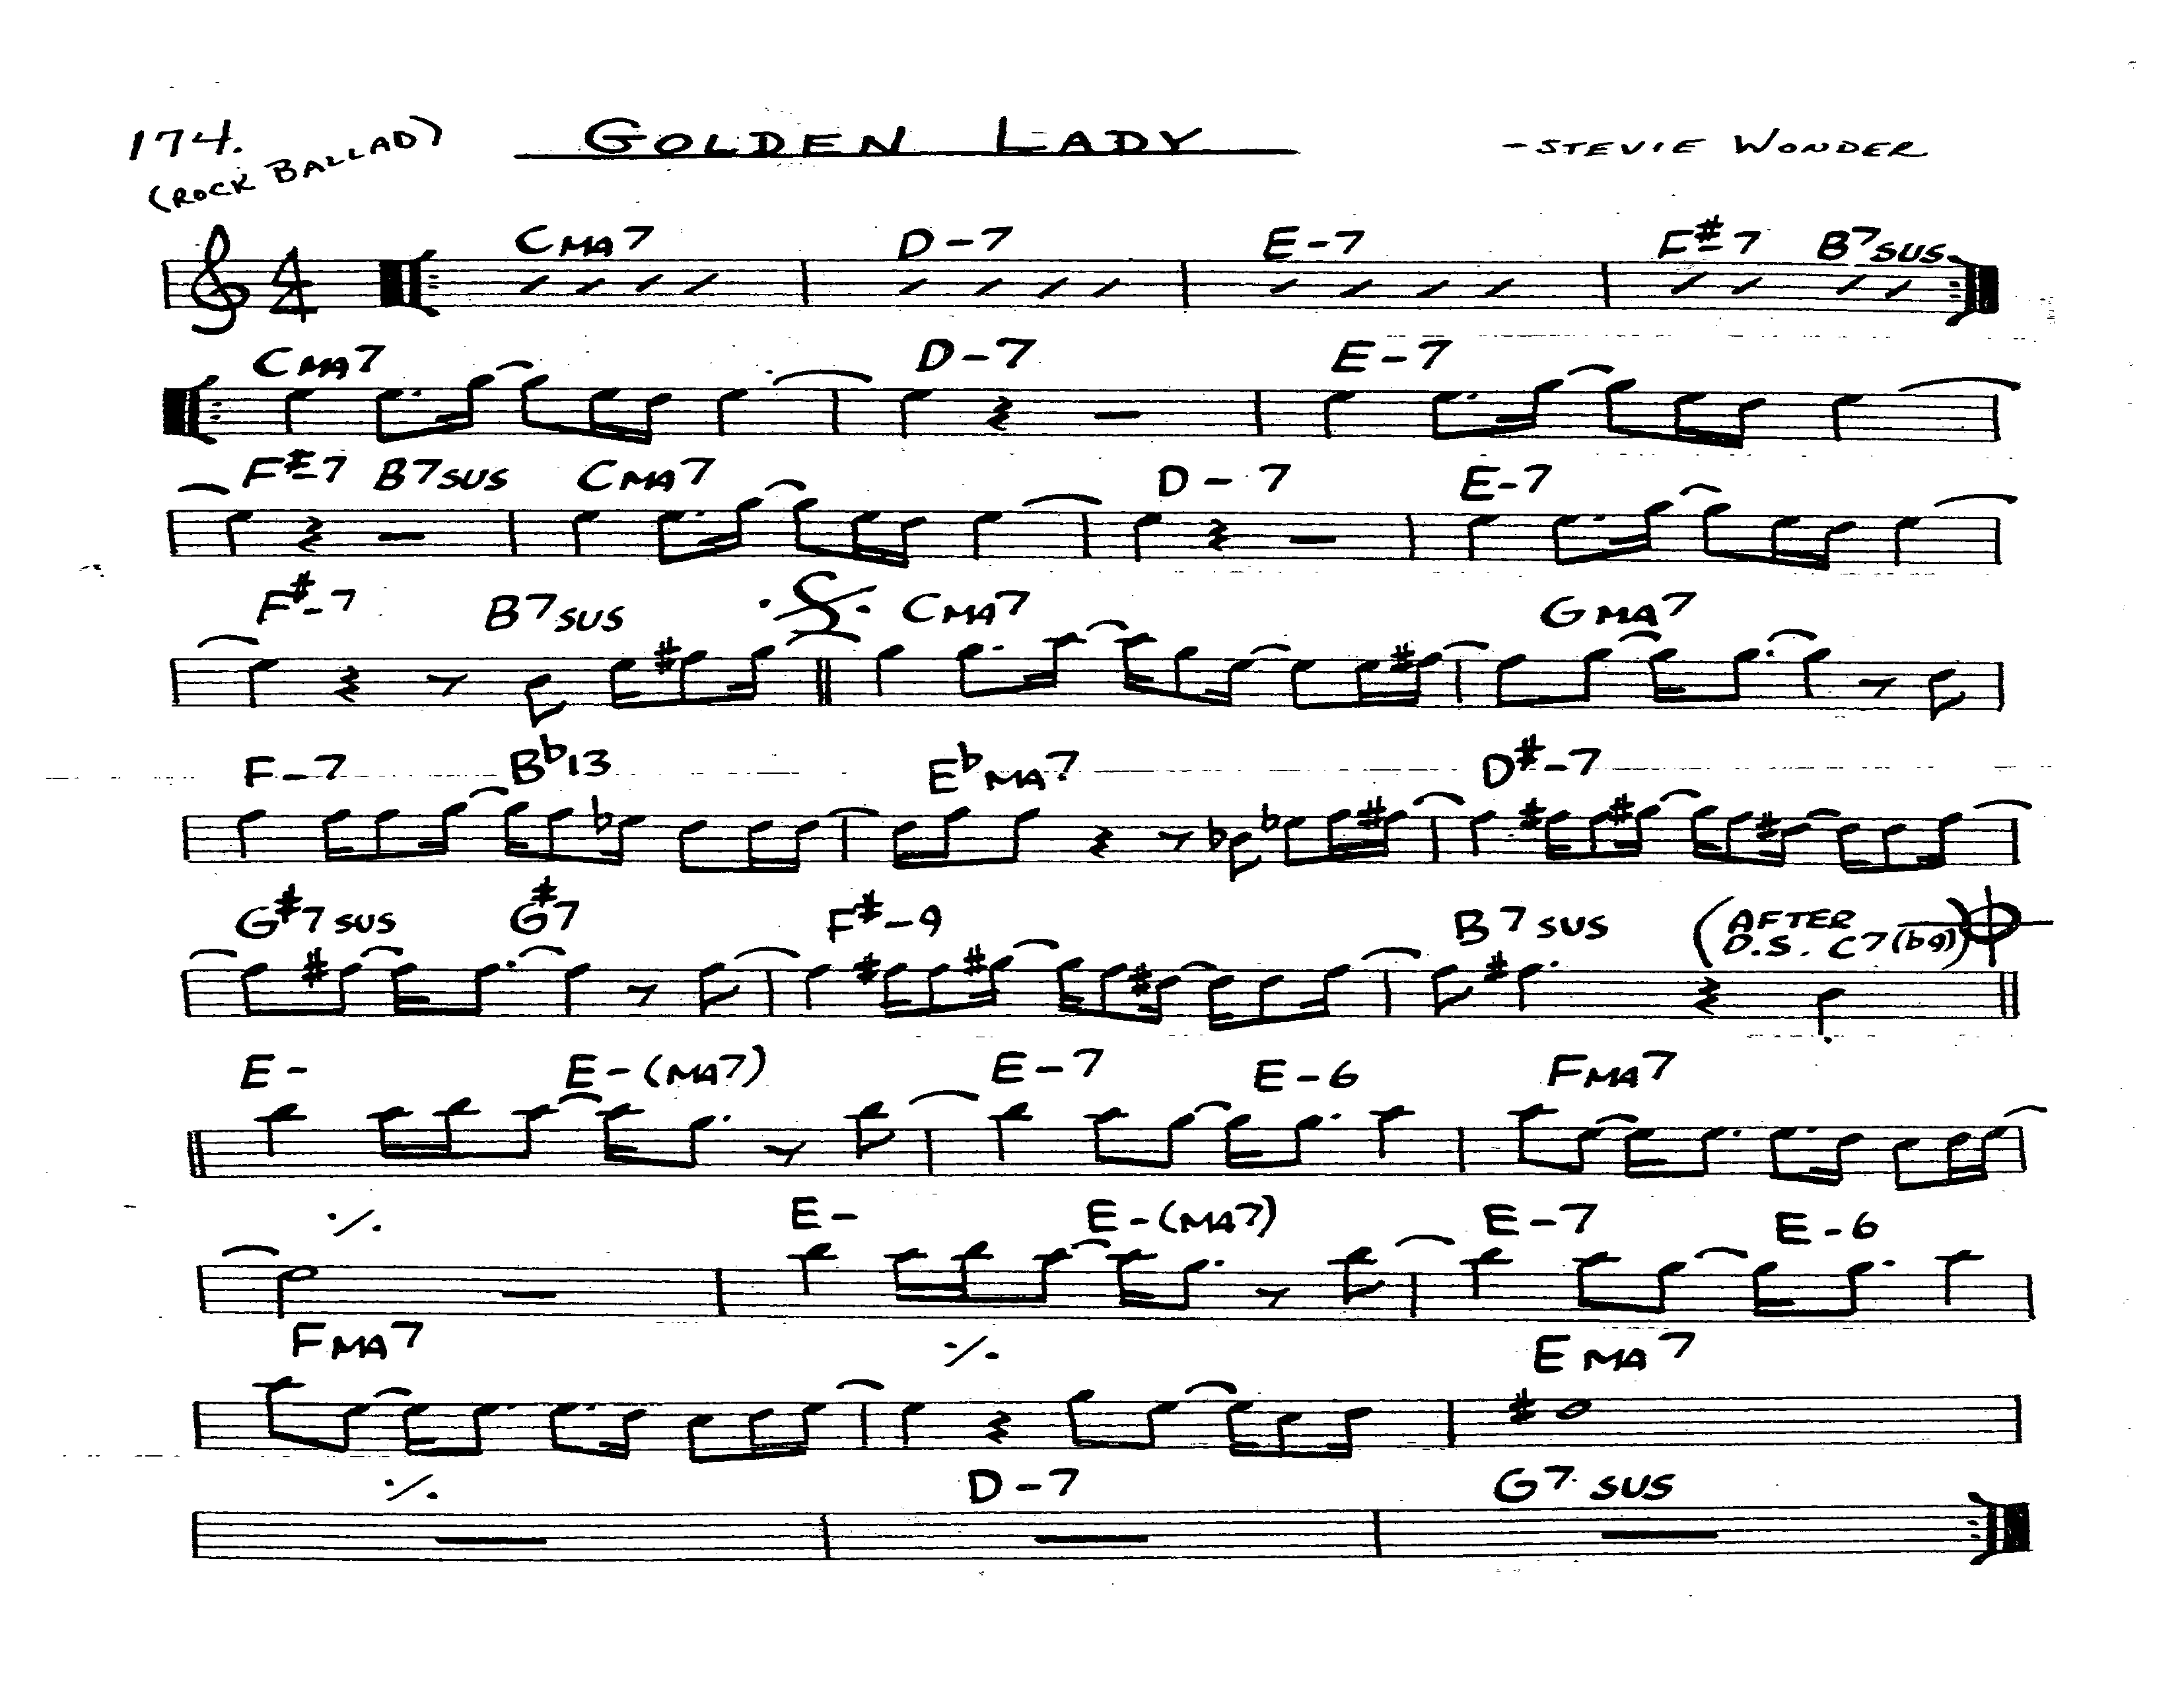 174. GOLDEN LADY -STEVIE WONDER
(ROCK BALLAD)
CMA7 D-7 E-7 F#-7 B7SUS
CMA7 D-7 E-7
F#-7 B7SUS CMA7 D-7 E-7
F#-7 B7SUS CMA7 GMA7
F-7 Bb13 EbMA7 D#-7
G#7SUS G#7 F#-9 B7SUS (AFTER
D.S. C7(b9))
E- E-(MA7) E-7 E-6 FMA7
E- E-(MA7) E-7 E-6
FMA7 EMA7
D-7 G7SUS